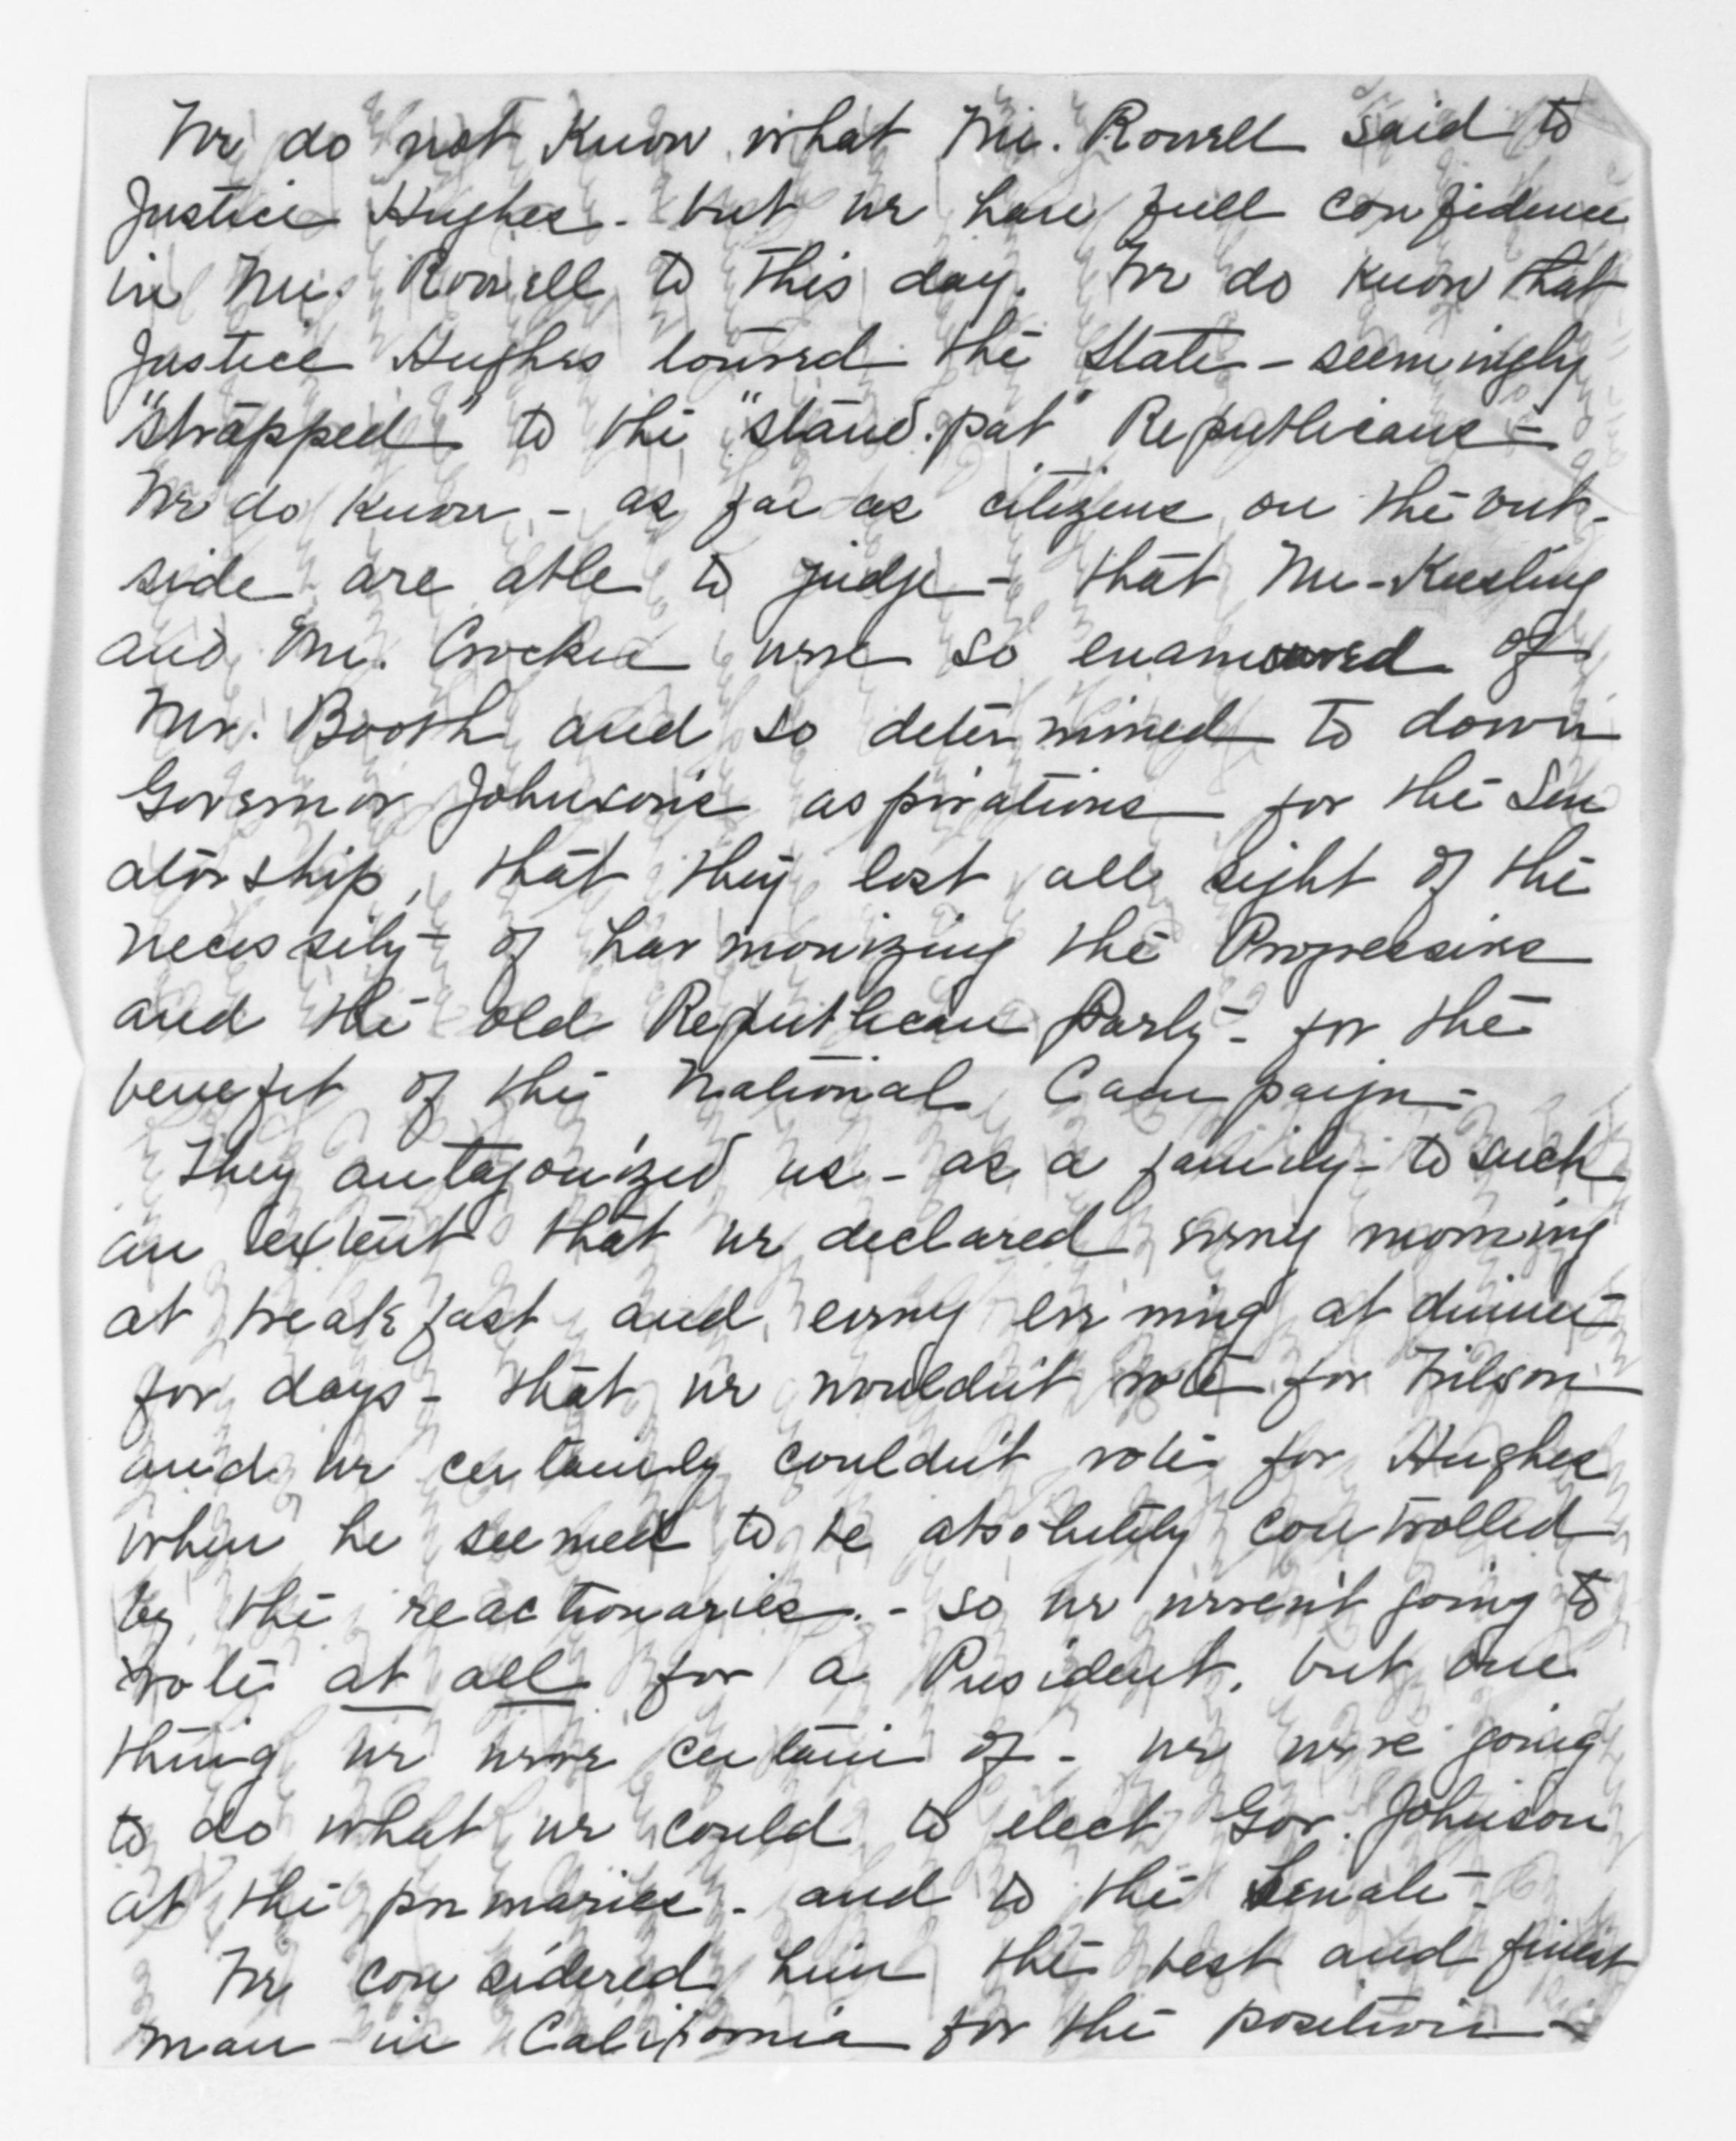 We do not know what Mr. Rowell said to
Justice Hughes - but we have full confidence
in Mr. Rowell to this day. We do know that
Justice Hughes toured the State - seemingly
"strapped" to the "stand-pat" Republicans -
We do know - as far as citizens on the out-
side are able to judge - that Mr. Keesling
and Mr. Crocker were so enamoured of
Mr. Booth and so determined to down
Governor Johnson's aspirations for the Sen
atorship, that they lost all sight of the
necessity of harmonizing the Progressive
and the old Republican Party - for the
benefit of the National Campaign -
They antagonized us - as a family - to such
an extent that we declared every morning
at breakfast and every evening at dinner
for days - that we wouldn't vote for Wilson
and we certainly couldn't vote for Hughes
when he seemed to be absolutely controlled
by the reactionaries. - so we weren't going to
vote at all for a President, but one
thing we were certain of - we were going
to do what we could to elect Gov. Johnson
at the primaries - and to the Senate -
We considered him the best and finest
man in California for the position -